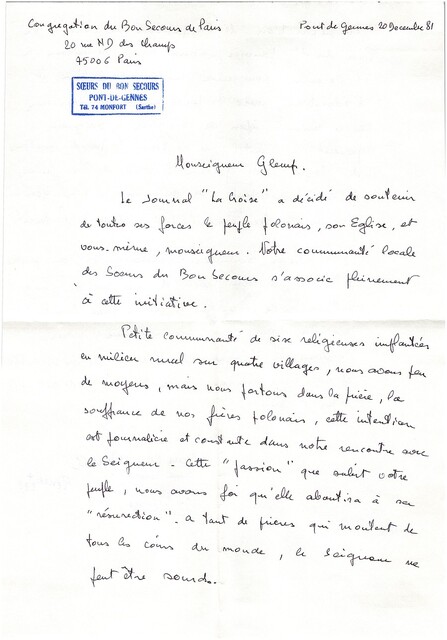 Congregation du Bon Secours de Paris
Pont de Gennes 20 Decembre 81
20 rue ND des Champs
75006 Paris
SŒURS DU BON SECOURS
PONT-DE-GENNES
Tél. 74 MONFORT (Sarthe)
Monseigneur Glemp.
Le Journal "La Croix" a décidé de soutenir
de toutes ses forces le peuple polonais, son Eglise, et
vous-même, monseigneur. Notre communauté locale
des Sœurs du Bon Secours s'associe pleinement
à cette initiative.
Petite communauté de six religieuses implantées
en milieu rural sur quatre villages, nous avons peu
de moyens, mais nous portons dans la prière, la
souffrance de nos frères polonais, cette intention
est journalière et constante dans notre rencontre avec
le Seigneur - Cette "passion" que subit votre
peuple, nous avons foi qu'elle aboutira à sa
"résurection". a tant de prières qui montent de
tous les coins du monde, le Seigneur ne
peut être sourd.